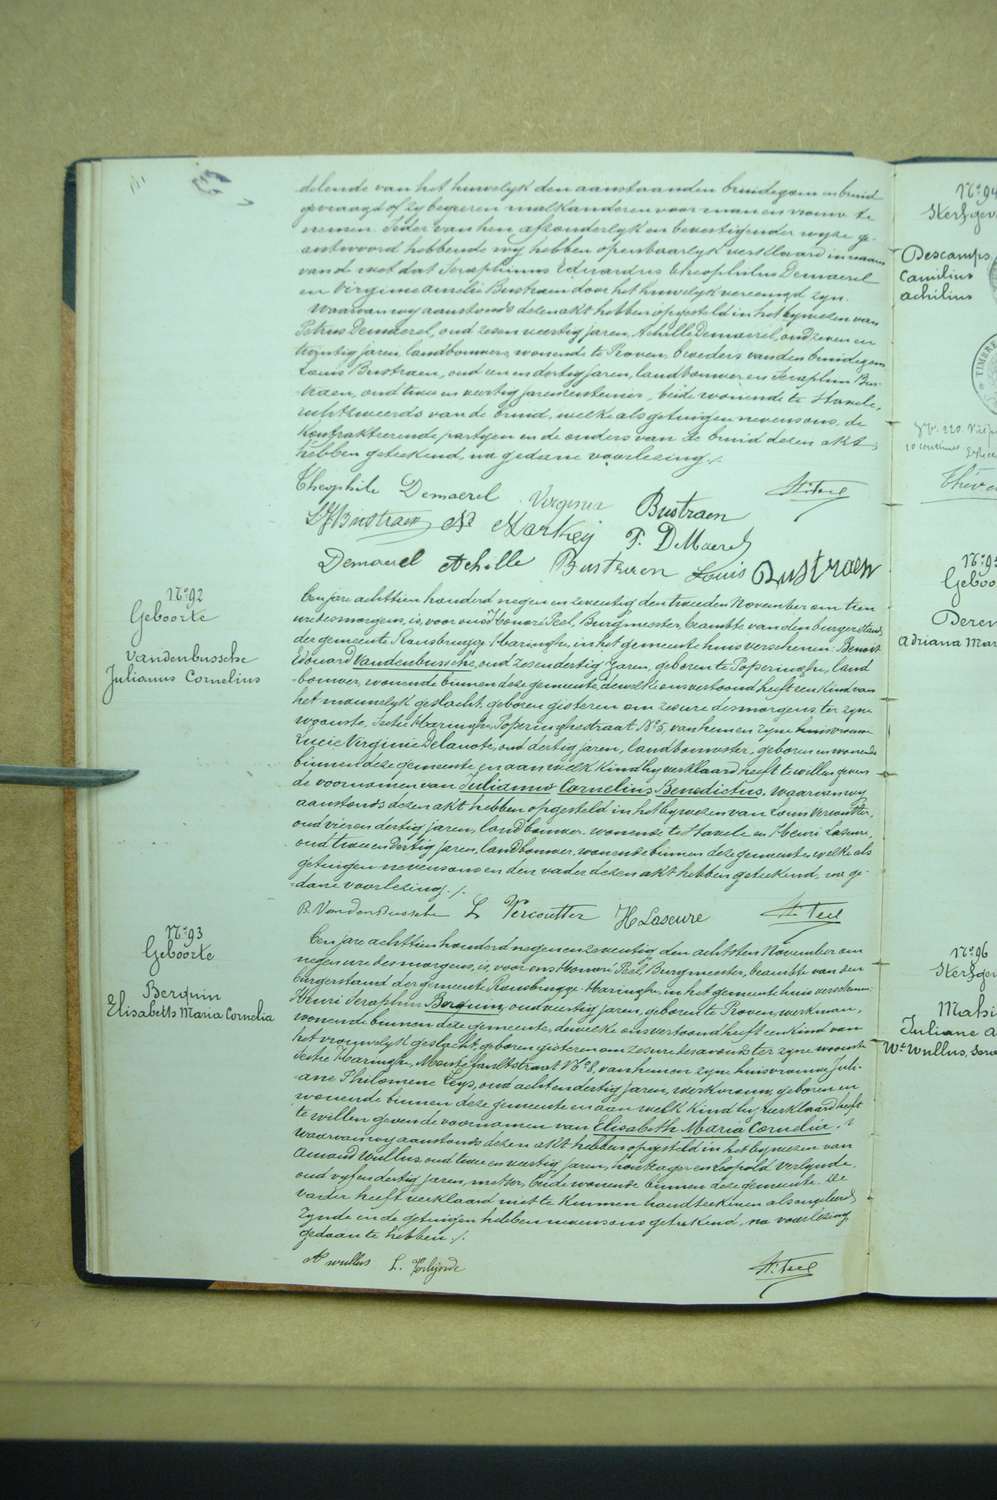 delende van het huwelyk den aanstaanden bruidegom en bruid
gevraagd of zy begeeren malkanderen voor man en vrouw te
nemen. Ieder van hen afzonderlyk en bevestigender wyze ge-
antwoord hebbende wy hebben openbaarlyk verklaard in naam
van de wet dat Seraphinus Eduardus Theophilus Demaerel
en Virginie Amelie Bustraen door het huwelyk vereenigd zyn.
Waarvan wy aanstonds dezen akt hebben opgesteld in het bywezen van
Petrus Demaerel, oud zes en veertig jaren, Achille Demaerel, oud zeven en
twintig jaren, landbouwers, wonende te Proven, broeders van den bruidegom
Louis Bustraen, oud een en dertig jaren, landbouwer en Seraphin Bus-
traen, oud twee en veertig jaren, rentenier, beide wonende te Stavele,
rechtzweerds van de bruid, welke als getuigen nevens ons, de
Kontrakteerende partyen en de ouders van de bruid dezen akt
hebben geteekend, na gedane voorlezing ./.
Theophile Demaerel Virginie Bustraen H. Peel
Bustraen Markey P. D Maerel
Demaerel Achille Bustraen Louis Bustraen
No 92
Geboorte
Vandenbussche
Julianus Cornelius
Een jare achttien honderd negen en zeventig den tweeden November om tien
ure des morgens, is, voor ons Honoré Peel, Burgmeester, beambte van den burgerstand
der gemeente Rousbrugge Haringhe, in het gemeente huis verschenen Benoit
Edouard Vandenbussche, oud zes en dertig jaren, geboren te Poperinghe, land
-bouwer, wonende binnen deze gemeente, dewelke ons vertoond heeft een kind van
het mannelyk geslacht, geboren gisteren om zes ure des morgens, ter zyne
woonste, Sectie Haringhe, Poperinghestraat No 5, van hem en zyne huisvrouw
Lucie Virginie Delanote, oud dertig jaren, landbouwster, geboren en wonende
binnen deze gemeente, en aan welk kind hy verklaard heeft te willen geven
de voornamen van Julianus Cornelius Benedictus. Waarvan wy
aanstonds dezen akt hebben opgesteld in het bywezen van Louis Vercoutter,
oud vier en dertig jaren, landbouwer wonende te Stavele en Henri Laseure,
oud twee en dertig jaren, landbouwer, wonende binnen deze gemeente, welke als
getuigen nevens ons en den vader dezen akt hebben geteekend, na ge-
-dane voorlezing ./.
B. VandenBussche L Vercoutter H Laseure H. Peel
No 93
Geboorte
Berquin
Elisabeth Maria Cornelia
Een jare achttien honderd negen en zeventig, den achtsten November om
negen ure des morgens, is, voor ons Honoré Peel, Burgmeester, beambte van den
burgerstand der gemeente Rousbrugge Haringhe, in het gemeente huis verschenen
Henri Seraphin Berquin, oud veertig jaren, geboren te Proven, werkman,
wonende binnen deze gemeente, dewelke ons vertoond heeft een kind van
het vrouwelyk geslacht, geboren gisteren om zes ure des avonds ter zyne woonste
Sectie Haringhe, straat No 8, van hem en zyne huisvrouw Juli-
-ane Philomene Leys, oud acht en dertig jaren, werkvrouw, geboren en
wonende binnen deze gemeente en aan welk kind hy verklaard heeft
te willen geven de voornamen van Elisabeth Maria Cornelia.
Waarvan wy aanstonds dezen akt hebben opgesteld in het bywezen van
Amand Wullus, oud twee en veertig jaren, en Leopold Verlynde,
oud vyf en dertig jaren, metser, beide wonende binnen deze gemeente. De
vader heeft verklaard niet te kennen handteekenen als ongeleerd
zynde en de getuigen hebben nevens ons geteekend, na voorlezing
gedaan te hebben ./.
A Wullus L. Verlynde H. Peel
No 94
Descamps
Camilius
Achilius
TIMBRE
No 95
Adriana Mar
No 96
Juliane A
Wullus